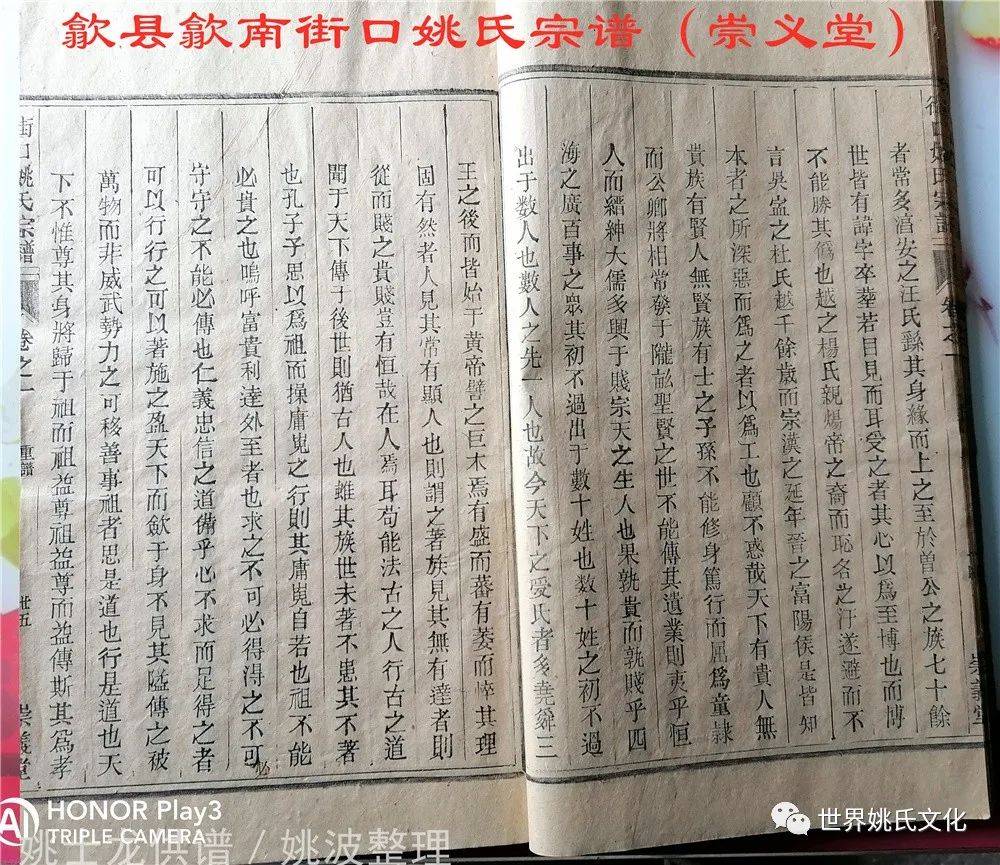 歙县歙南街口姚氏宗谱（崇义堂）
者常多淯安之汪氏繇其身緣而上之至於曽公之族七十餘
世皆有諱字卒塟若目見而耳受之者其心以爲至博也而博
不能勝其僞也越之楊氏親煬帝之裔而恥名之汙遂避而不
言吳寍之杜氏越千餘歲而宗漢之延年晉之富陽侯是皆知
本者之所深惡而爲之者以爲工也顧不惑哉天下有貴人無
貴族有賢人無賢族有士之子孫不能修身篤行而屈爲童隷
而公卿將相常發于隴畝聖賢之世不能傳其遺業則夷乎恒
人而縉紳大儒多興于賤宗天之生人也果孰貴而孰賤乎四
海之廣百事之衆其初不過出于數十姓也数十姓之初不過
出于数人也數人之先一人也故今天下之受氏者多堯舜三
王之後而皆始于黄帝譬之巨木焉有盛而蕃有萎而悴其理
固有然者人見其常有顯人也則謂之著族見其無有達者則
從而賤之貴賤豈有恒哉在人焉耳苟能法古之人行古之道
聞于天下傳于後世則猶古人也雖其族世未著不患其不著
也孔子子思以爲祖而操庸嵬之行則其庸嵬自若也祖不能
必貴之也嗚呼富貴利達外至者也求之不可必得得之不可
必
守守之不能必傳也仁義忠信之道備乎心不求而足得之者
可以行行之可以著施之盈天下而歛于身不見其隘傳之破
萬物而非威武勢力之可移善事祖者思是道也行是道也天
下不惟尊其身將歸于祖而祖益尊祖益尊而益傳斯其爲孝
街口姚氏宗譜
卷之一
重譜
卅五
崇義堂
街口姚氏宗譜
卷之一
崇義堂
HONOR Play3
TRIPLE CAMERA
姚土龙供谱 / 姚波整理
世界姚氏文化